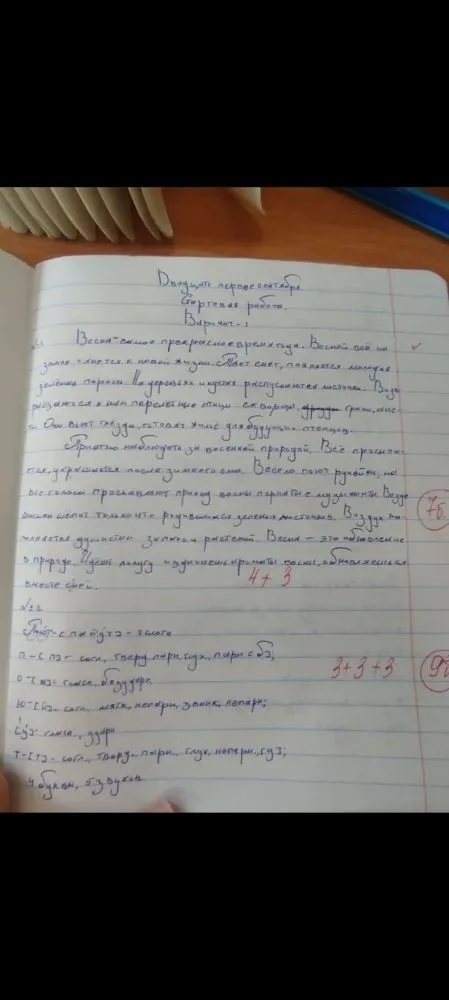 Двадцать первое сентября.
Стартовая работа.
Вариант-1
№1 Весна-самое прекрасное время года. Весной всё на
земле тянется к новой жизни. Тает снег, появляется молодая
зелёная поросль. На деревьях и кустах распускаются листочки. Возв
ращаются к нам перелётные птицы: скворцы, грачи, аис-
ты. Они вьют гнёзда, готовят жильё для будущих птенцов.
Приятно наблюдать за весенней природой. Всё просыпа-
ется, украшается после зимнего сна. Весело поют ручейки, на
все голоса прославляют приход весны пернатые музыканты. Везде
слышен шёпот только что родившихся зелёных листочков. Воздух на-
полняется душистым запахом растений. Весна - это обновление
в природе. Идёшь по лугу и вдыхаешь ароматы весны, обновляешься
вместе с ней.
4+3
7б.
№2
Поют-[пайут]- 2 слога
п-[п]- согл., тверд. парн., глух., парн [б];
о-[а]- гласн., безударн.
ю-[й]- согл., мягк., непарн., звонк., непарн;
[у]- гласн., ударн
т-[т]- согл., тверд., парн., глух., непарн., [д];
4 буквы, 5 звуков.
3+3+3